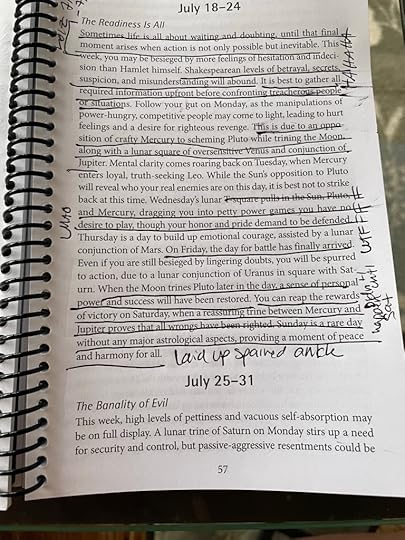 July 18–24
The Readiness Is All
Sometimes life is all about waiting and doubting, until that final
moment arises when action is not only possible but inevitable. This
week, you may be besieged by more feelings of hesitation and indeci-
sion than Hamlet himself. Shakespearean levels of betrayal, secrets,
suspicion, and misunderstanding will abound. It is best to gather all
required information upfront before confronting treacherous people
or situations. Follow your gut on Monday, as the manipulations of
power-hungry, competitive people may come to light, leading to hurt
feelings and a desire for righteous revenge. This is due to an oppo-
sition of crafty Mercury to scheming Pluto while trining the Moon,
along with a lunar square of oversensitive Venus and conjunction of
Jupiter. Mental clarity comes roaring back on Tuesday, when Mercury
enters loyal, truth-seeking Leo. While the Sun's opposition to Pluto
will reveal who your real enemies are on this day, it is best not to strike
back at this time. Wednesday's lunar T-square pulls in the Sun, Pluto,
and Mercury, dragging you into petty power games you have no
desire to play, though your honor and pride demand to be defended.
Thursday is a day to build up emotional courage, assisted by a lunar
conjunction of Mars. On Friday, the day for battle has finally arrived.
Even if you are still besieged by lingering doubts, you will be spurred
to action, due to a lunar conjunction of Uranus in square with Sat-
urn. When the Moon trines Pluto later in the day, a sense of personal
power and success will have been restored. You can reap the rewards
of victory on Saturday, when a reassuring trine between Mercury and
Jupiter proves that all wrongs have been righted. Sunday is a rare day
without any major astrological aspects, providing a moment of peace
and harmony for all. laid up
HAHAHA
WTF
until
Sat
July 25–31
The Banality of Evil
This week, high levels of pettiness and vacuous self-absorption may
be on full display. A lunar trine of Saturn on Monday stirs up a need
for security and control, but passive-aggressive resentments could be
57